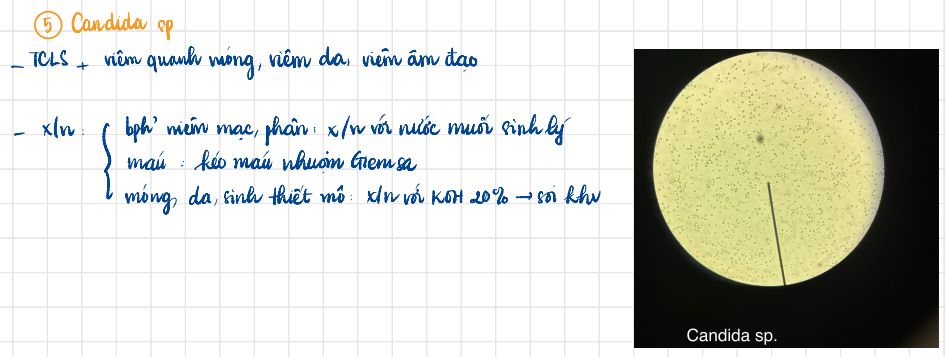 ⑤ Candida sp
- TCLS + viêm quanh móng, viêm da, viêm âm đạo
- x/n : { bph' niêm mạc, phân : x/n với nước muối sinh lý
máu : kéo máu nhuộm Giemsa
móng, da, sinh thiết mô : x/n với KOH 20% → soi khv
Candida sp.